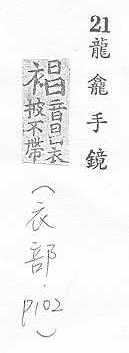 21 龍龕手鏡
裮音昌衣
披不帶
(衣部.p102)